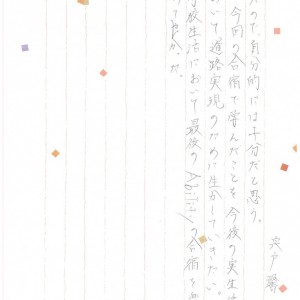 宍戸
ので、自分的には十分だと思う。
今回の合宿で学んだことを今後の実生
おいて道路実現のために生かしていきたい。
校生活において最後のAbilityの合宿を
てよかった。